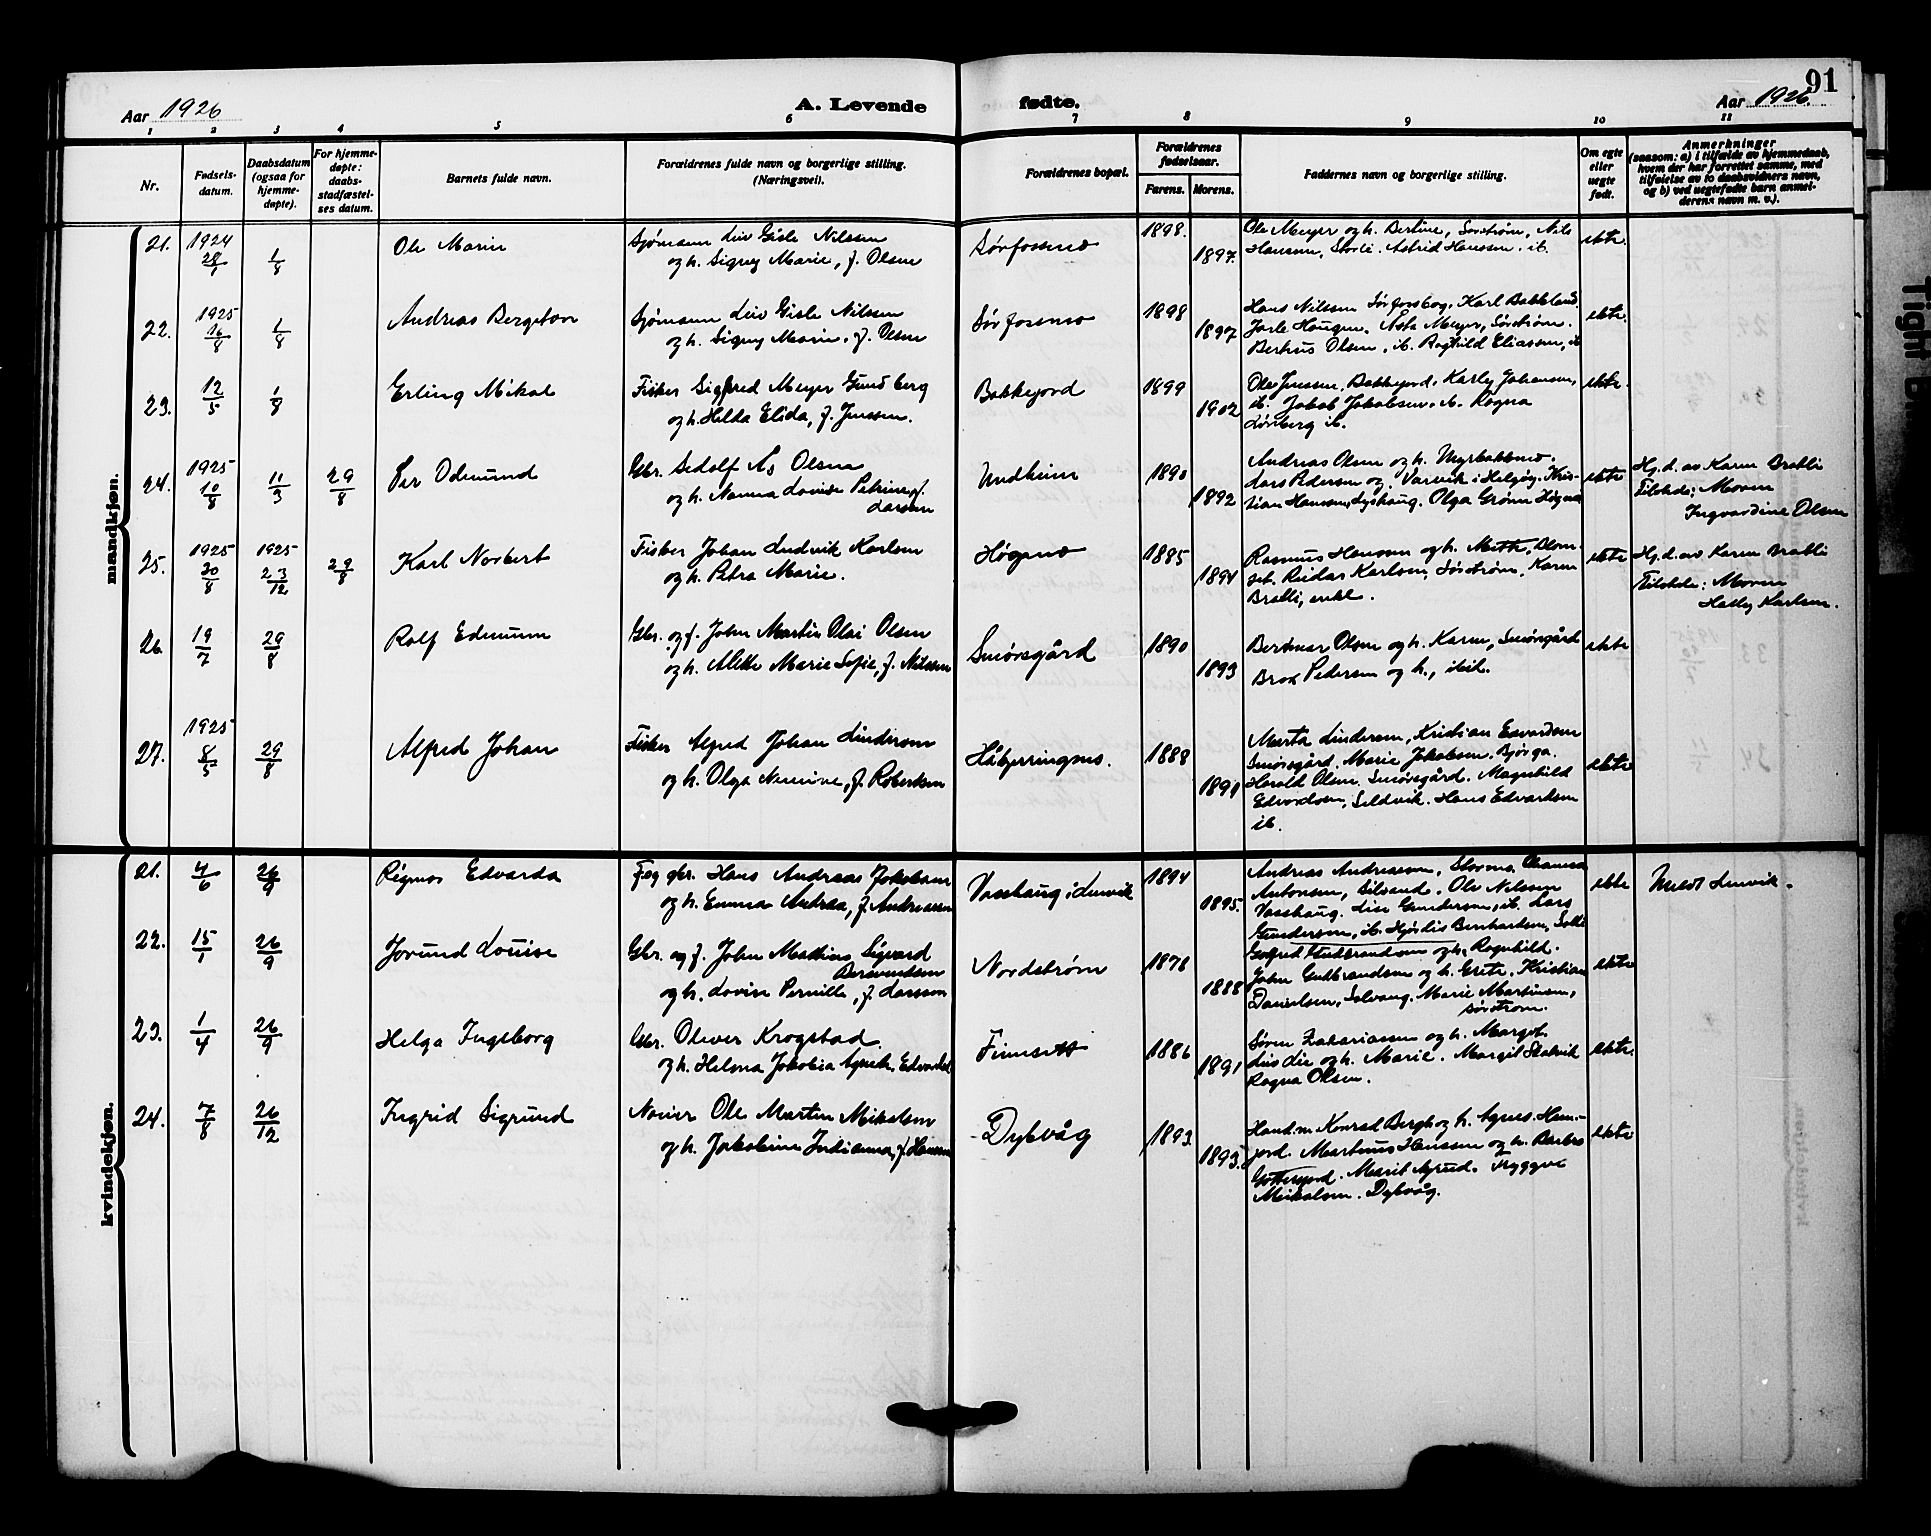 91
Aar 1926
A. Levende fødte.
Aar 1926
1 2 3 4 5 6 7 8 9 10 11
Nr.
Fødsels-
datum.
Daabsdatum
(ogsaa for
hjemme-
døpte).
For hjemme-
døpte:
daabs-
stadfæstel-
ses datum.
Barnets fulde navn.
Forældrenes fulde navn og borgerlige stilling.
(Næringsvei).
Forældrenes bopæl.
Forældrenes
fødselsaar.
Farens. Morens.
Faddernes navn og borgerlige stilling.
Om egte
eller
uegte
født.
Anmerkninger
(saasom: a) i tilfælde av hjemmedaab,
hvem der har forrettet samme, med
tilføielse av to daabsvidners navn,
og b) ved uegtefødte barn anmel-
derens navn m. v.).
mandkjøn.
21. 1924
28/1 1/8
Ole Marin
Sjømann Leiv Gisle Nilssen
og h. Signy Marie, f. Olsen
Sørfossmo
1898.
1897.
Ole Meyer og h. Bertine, Sørstrøm, Nils
Hanssen, Storli. Astrid Hanssen. ib.
ekte.
22. 1925
16/8 1/8
Andreas Bergeton
Sjømann Leiv Gisle Nilssen
og h. Signy Marie, f. Olsen
Sørfossmo
1898
1897
Hans Nilssen Sørfossbog, Karl Bakkland
Jarle Haugen, Asta Meyer, Sørstrøm.
Berteus Olsen, ib. Raghild Eliassen, ib
ekte.
23. 12/5 1/8
Erling Mikal
Fisker Sigfred Meyer Gundberg
og h. Helda Elida, f. Jenssen.
Bakkejord
1899
1902
Ole Jenssen, Bakkejord. Karly Johansen,
ib. Jakob Jakobsen. ib. Ragna
Lønberg ib.
ekte.
24. 1925
10/8 11/9 29/8
Per Odmund
Gbr. Sedolf As Olsen
og h. Nanna Lovise Petrine f.
Larsen
Undheim
1890
1892
Andreas Olsen og h. Myrbakkmo.
Lars Pedersen og Varvik i Helgøy. Kris-
tian Hansen, Lyshaug. Olga Grønn Høgmo
ekte
Hj.d. av Karen Bratli
Tilstede: Moren
Ingvardine Olsen
25. 1925
30/8 1925
23/12 29/8
Karl Norbert
Fisker Johan Ludvik Karlsen
og h. Petra Marie.
Høgmo
1885
1894
Rasmus Hanssen og h. Meth, Blom-
set. Reidar Karlsen, Sørstrøm, Karen
Bratli, enke.
ekte
Hj.d. av Karen Bratli
Tilstede: Moren
Halby Karlsen.
26. 19/7 29/8
Rolf Edmunn
Gbr. og f. John Martin Olai Olsen
og h. Alette Marie Sofie, f. Nilssen
Smørsgård
1890
1893
Bertmar Olsen og h. Karen, Smørsgård
Brox Pedersen og h., ibid.
ekte
27. 1925
8/5 29/8
Alfred Johan
Fisker Alfred Johan Lindersen
og h. Olga Nannine, f. Robertsen
Håkjerringnes.
1888
1891
Marta Lindersen, Kristian Edvardsen
Smørsgård. Marie Jakobsen. Bjørga.
Harald Olsen Smørsgård. Magnhild
Edvardsen, Seldvik. Hans Edvardsen
ib.
ekte
kvindekjøn.
21. 4/6 26/9
Rigmor Edvarda
F. og gbr. Hans Andreas Jakobsen
og h. Emma Andrea, f. Andreassen
Vasshaug i Lenvik
1894
1895.
Andreas Andreassen, Stormo.
Antonsen, Silsand. Ole Nilssen
Vasshaug. Lise Gundersen, ib. Lars
Gundersen, ib. Hjørdis Bernhardsen, Solli
ekte
Meldt Lenvik.
22. 15/1 26/9
Jorund Louise
Gbr. og f. John Mathias Sigvard
Berntsen
og h. Lovise Pernille, f. Larsson
Nordstrøm
1878
1888
Gotfred Gudbrandsen og h. Ragnhild.
John Gudbrandsen og h. Grete. Kristian
Danielsen, Solvang. Marie Martinsen,
Sørstrøm.
ekte
23. 1/4 26/9
Helga Ingeborg
Gbr. Oliver Krogstad.
og h. Helma Jakobia Agneth. Edvardsd
Finnsett
1886
1891
Søren Zakariassen og h. Margot.
Lius Lie og h. Marie. Margit Slatvik
Ragna Olsen.
ekte.
24. 7/8 26/12
Ingrid Sigrund
Ole Martin Mikalsen
og h. Jakobine Indianna, f. Hanssen
Dybvåg
1893
1893.
Hand.m. Konrad Bergh og h. Agnes. Hem-
jord. Martinus Hanssen og h. Barbro
Gottesjord. Marit Agrud. Tryggve
Mikalsen. Dybvåg.
ekte